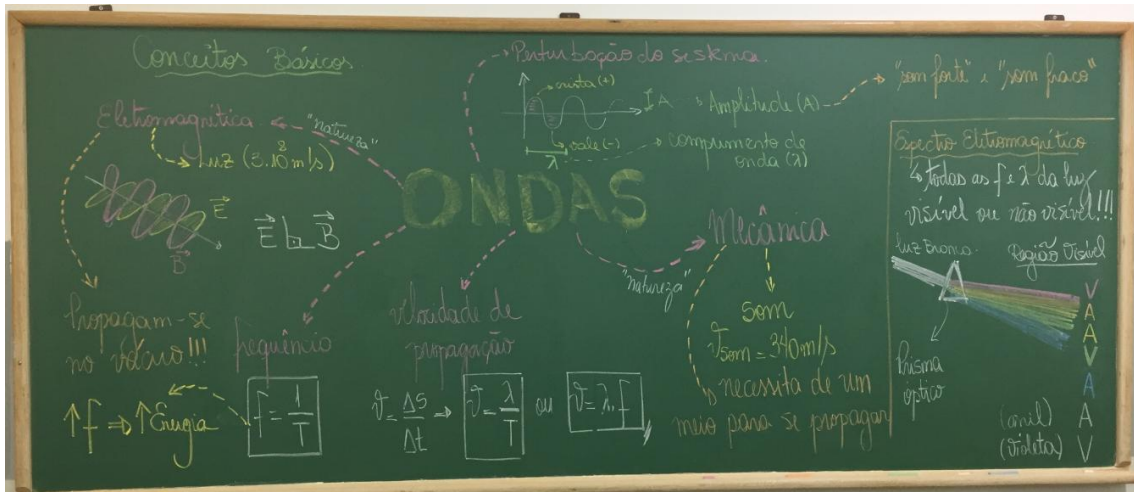 Conceitos Básicos
Eletromagnética
"natureza"
Luz (3.10⁸ m/s)
E⃗
B⃗
E⃗ B⃗
Propagam-se
no vácuo!!!
↑f ⇒ ↑Energia
frequência
f = 1/T
Perturbação do sistema.
crista (+)
A
vale (-)
λ
Amplitude (A)
"som forte" e "som fraco"
comprimento de
onda (λ)
ONDAS
velocidade de
propagação
v = Δs/Δt ⇒ v = λ/T ou v = λ.f
"natureza"
Mecânica
Som
Vsom = 340m/s
necessita de um
meio para se propagar
Espectro Eletromagnético
↳ todas as f e λ da luz
visível ou não visível!!!
luz branca
Região Visível
Prisma
óptico
V
A
A
V
A
(anil) A
(violeta) V